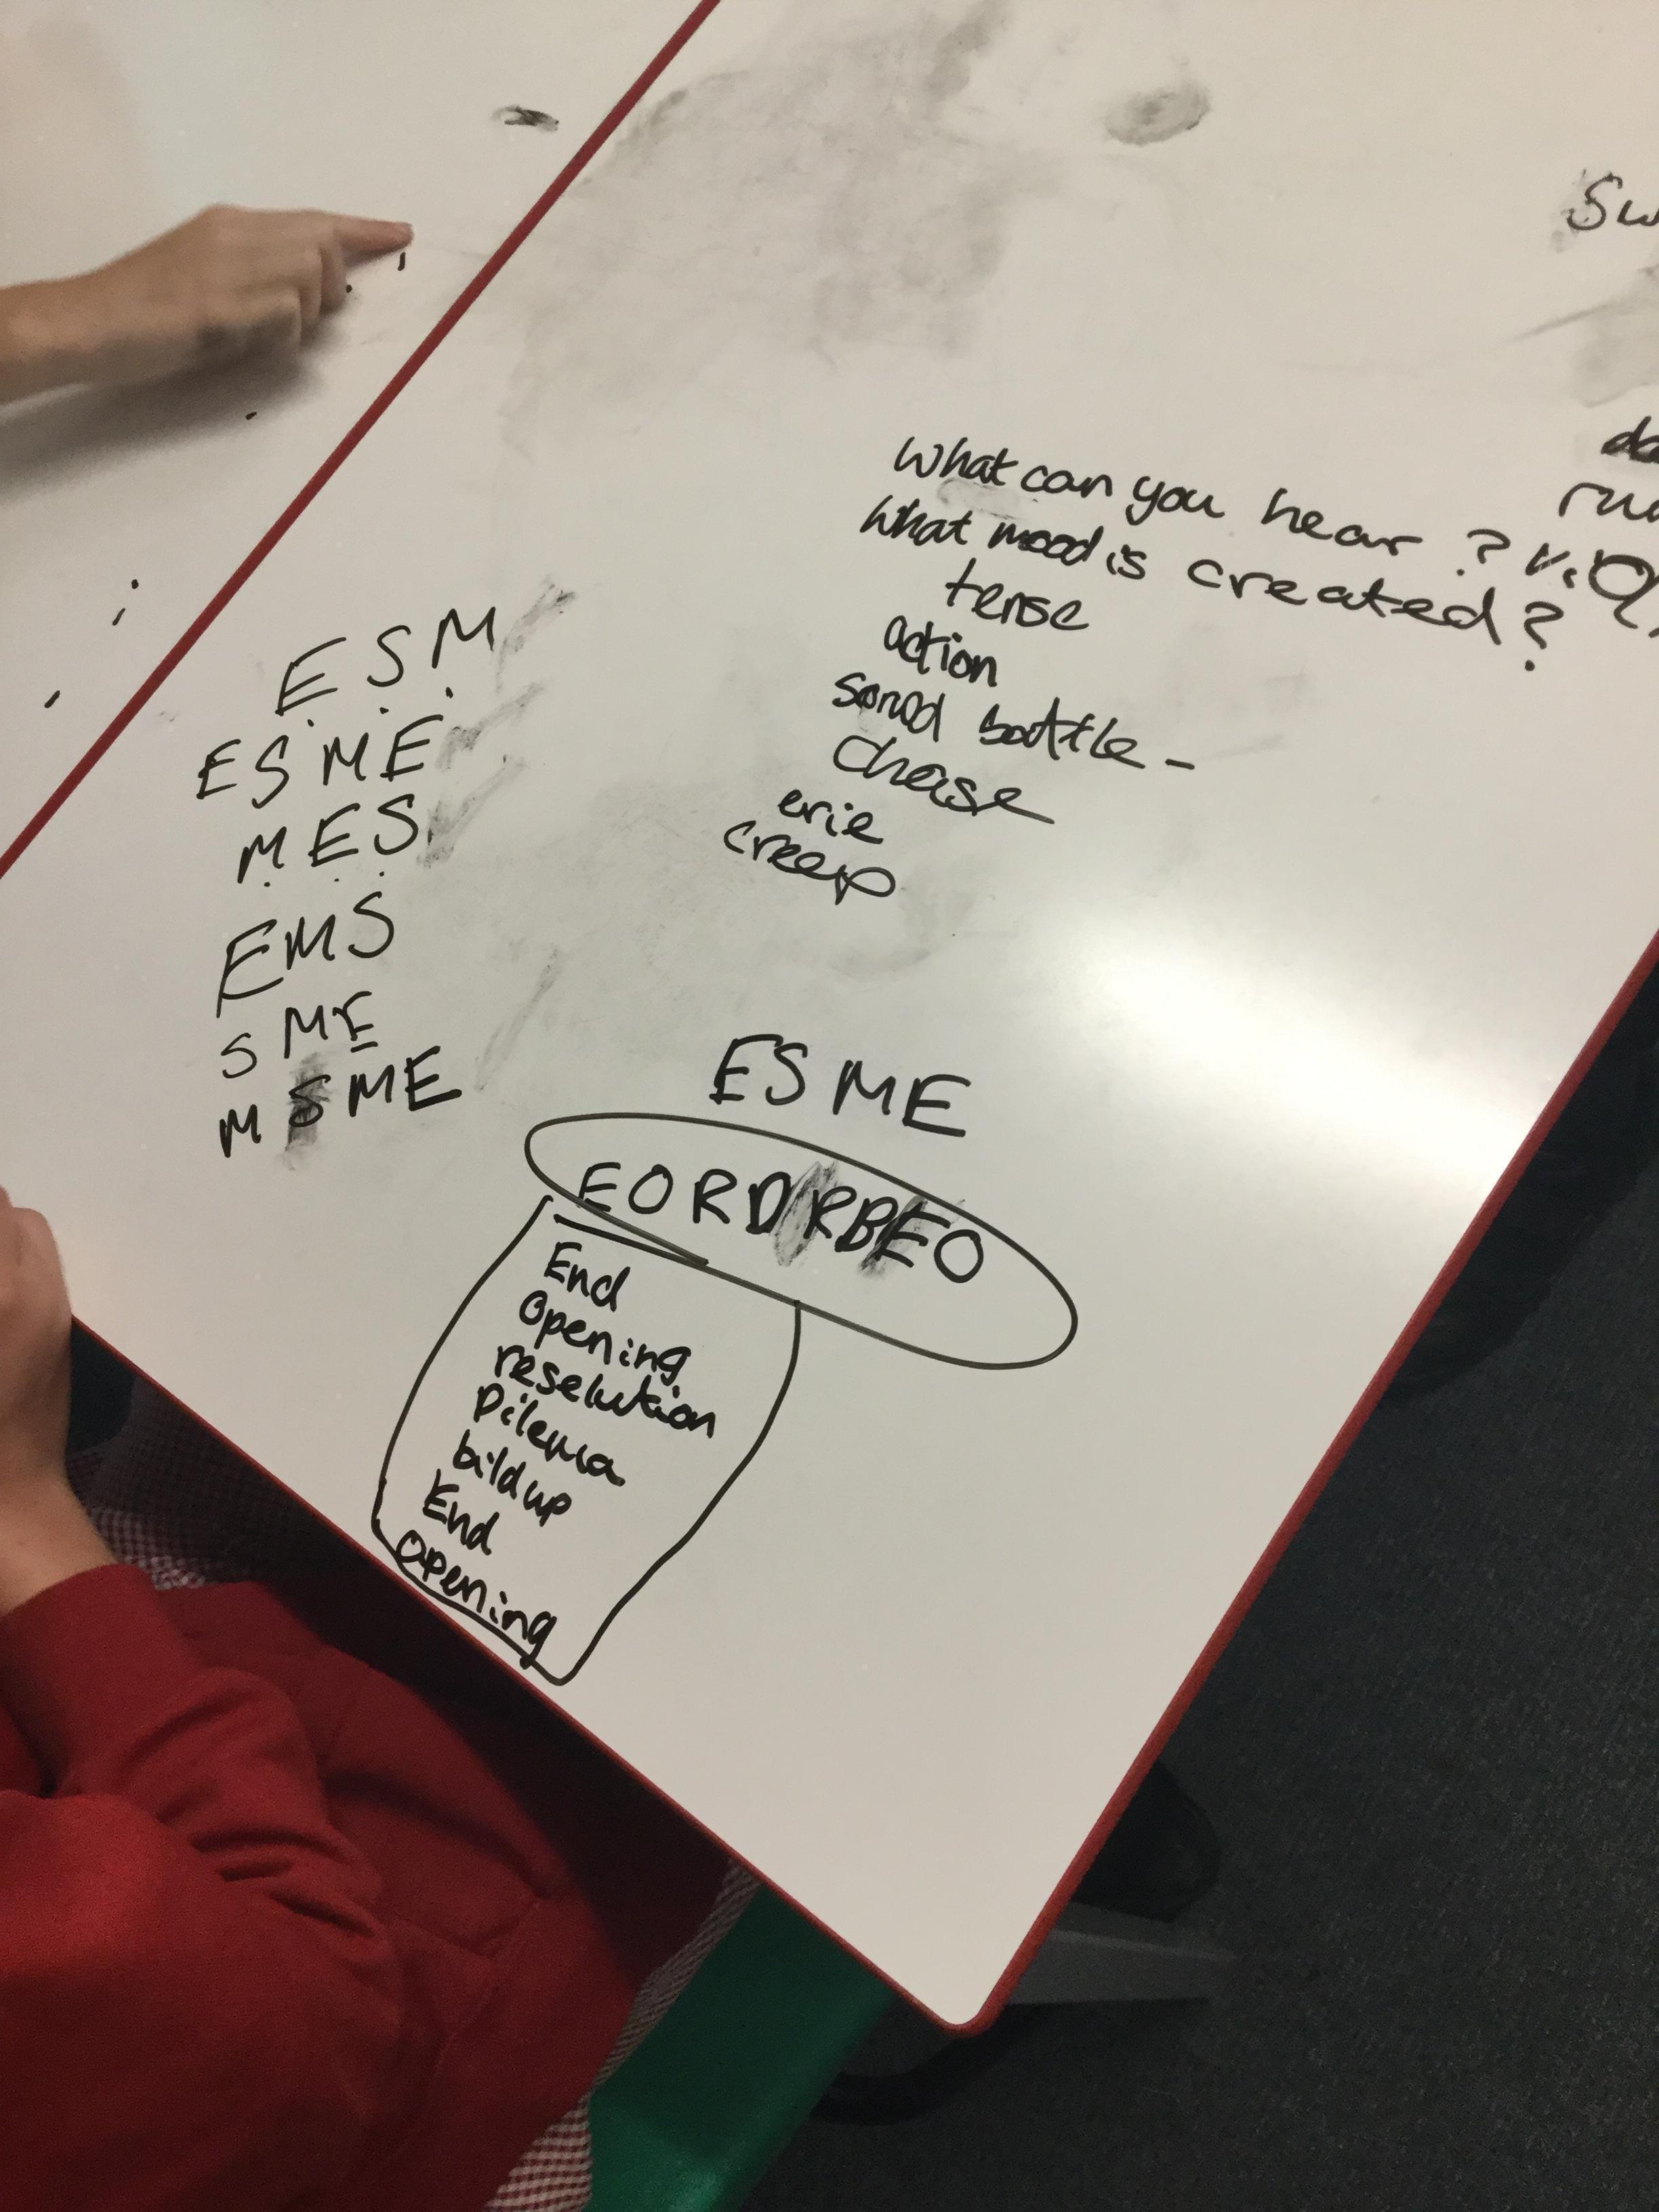 What can you hear?
What mood is created?
tense
action
battle -
Chase
erie
creep
E S M
E S M E
M E S
E M S
S M E
M S M E
E S M E
E O R D R B E O
End
Opening
reselution
Dilema
bildup
End
Opening